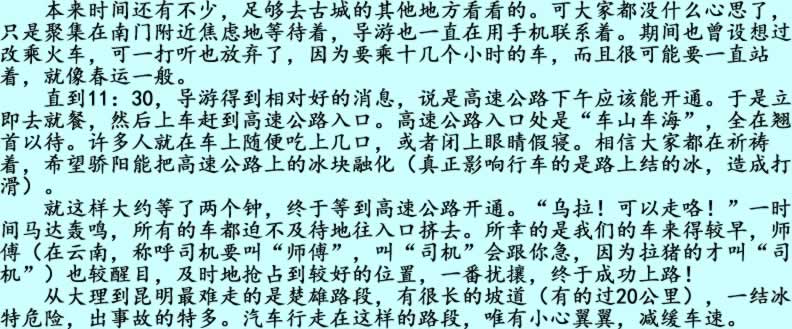 本来时间还有不少，足够去古城的其他地方看看的。可大家都没什么心思了，
只是聚集在南门附近焦虑地等待着，导游也一直在用手机联系着。期间也曾设想过
改乘火车，可一打听也放弃了，因为要乘十几个小时的车，而且很可能要一直站
着，就像春运一般。
直到11：30，导游得到相对好的消息，说是高速公路下午应该能开通。于是立
即去就餐，然后上车赶到高速公路入口。高速公路入口处是“车山车海”，全在翘
首以待。许多人就在车上随便吃上几口，或者闭上眼睛假寝。相信大家都在祈祷
着，希望骄阳能把高速公路上的冰块融化（真正影响行车的是路上结的冰，造成打
滑）。
就这样大约等了两个钟，终于等到高速公路开通。“乌拉！可以走咯！”一时
间马达轰鸣，所有的车都迫不及待地往入口挤去。所幸的是我们的车来得较早，师
傅（在云南，称呼司机要叫“师傅”，叫“司机”会跟你急，因为拉猪的才叫“司
机”）也较醒目，及时地抢占到较好的位置，一番扰攘，终于成功上路！
从大理到昆明最难走的是楚雄路段，有很长的坡道（有的过20公里），一结冰
特危险，出事故的特多。汽车行走在这样的路段，唯有小心翼翼，减缓车速。